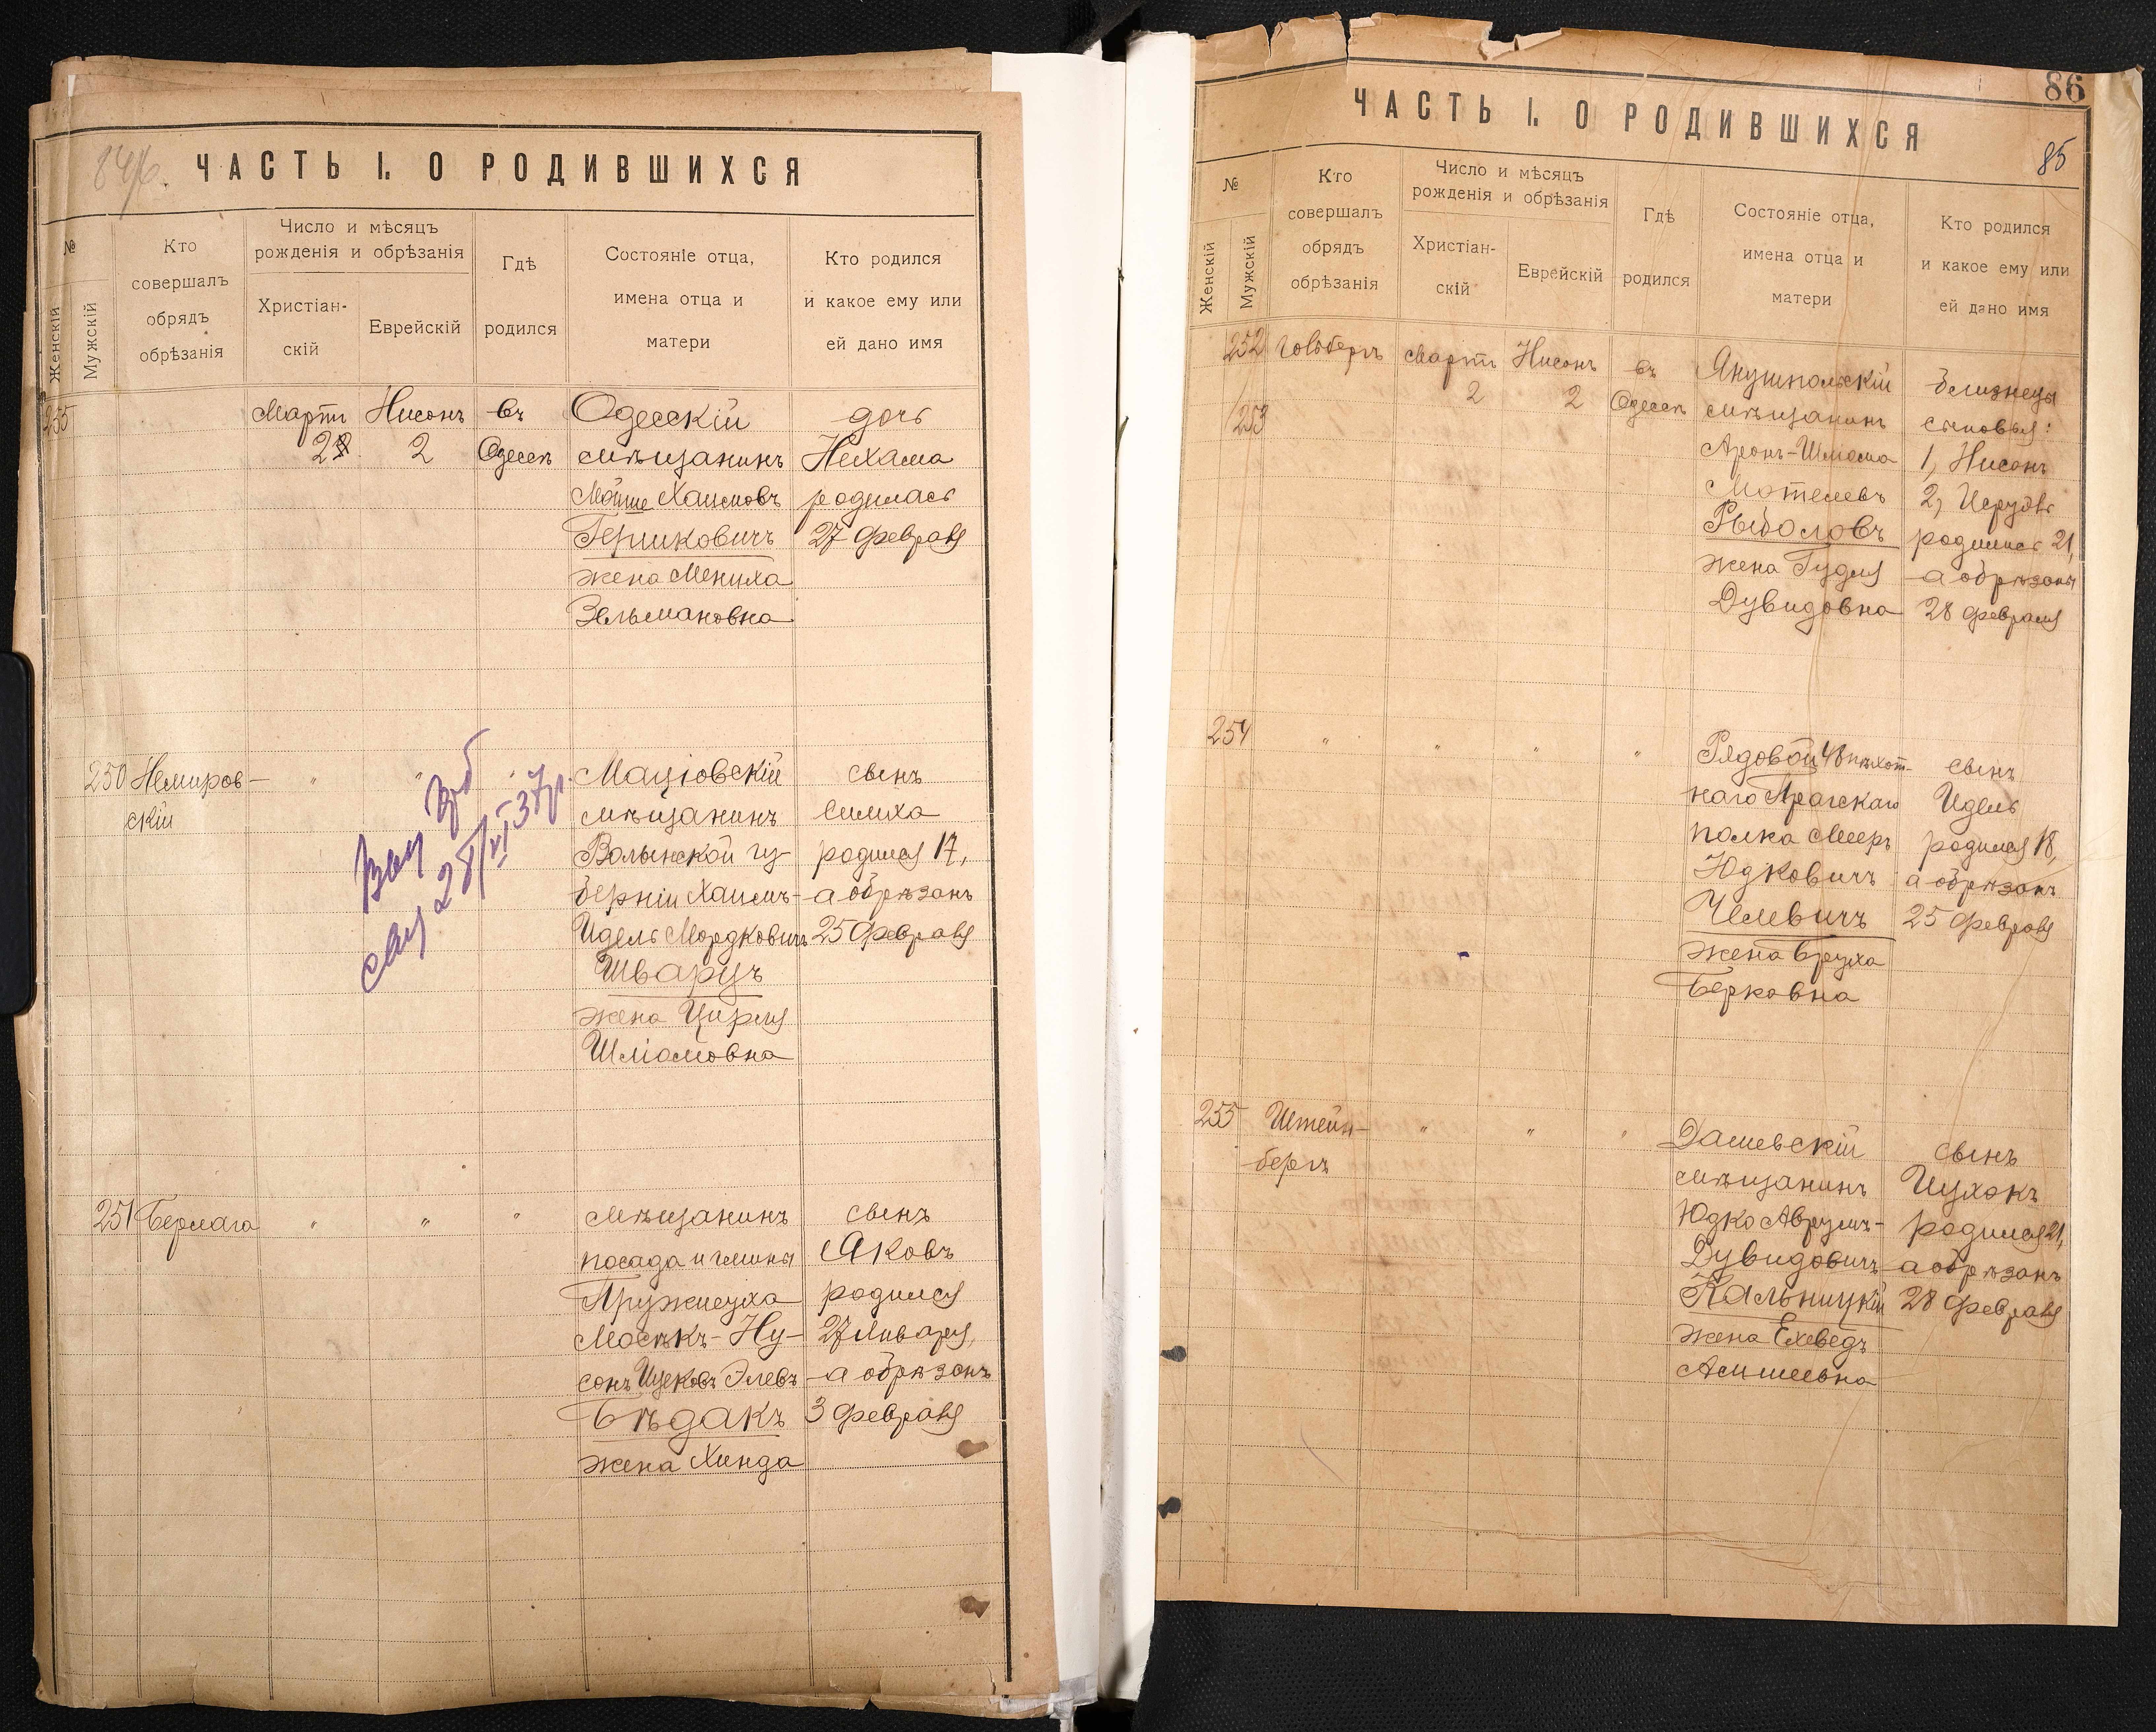 84/6.
ЧАСТЬ I. О РОДИВШИХСЯ
№
Женскій
Мужскій
Кто
совершалъ
обрядъ
обрѣзанія
Число и мѣсяцъ
рожденія и обрѣзанія
Христіан-
скій
Еврейскій
Гдѣ
родился
Состояніе отца,
имена отца и
матери
Кто родился
и какое ему или
ей дано имя
255
Мартъ
2
Нисонъ
2
въ
Одессѣ
Одесскій
мѣщанинъ
Мойше Хаимовъ
Гершковичъ
жена Мениха
Зельмановна
дочь
Нехама
родилась
27 февраля
250
Немиров-
скій
"
"
28/VI 37 г.
Маціовскій
мѣщанинъ
Волынской гу-
берніи Хаимъ-
Идель Мордковичъ
Шварцъ
жена Цирля
Шліомовна
сынъ
Симха
родился 17,
а обрѣзанъ
25 февраля
251
Бермага
"
"
"
мѣщанинъ
посада и гмины
Пружисуха
Мосѣкъ-Ну-
сонъ Ицековъ Элевъ
Бѣдакъ
жена Хинда
сынъ
Яковъ
родился
27 Января,
а обрѣзанъ
3 февраля
86
85
ЧАСТЬ I. О РОДИВШИХСЯ
№
Женскій
Мужскій
Кто
совершалъ
обрядъ
обрѣзанія
Число и мѣсяцъ
рожденія и обрѣзанія
Христіан-
скій
Еврейскій
Гдѣ
родился
Состояніе отца,
имена отца и
матери
Кто родился
и какое ему или
ей дано имя
252
253
Голдбергъ
Мартъ
2
Нисонъ
2
въ
Одессѣ
Янушпольскій
мѣщанинъ
Аронъ-Шліома
Мотелевъ
Рыболовъ
жена Гудля
Дувидовна
близнецы
сыновья:
1, Нисонъ
2, Исруль
родились 21,
а обрѣзаны
28 февраля
254
"
"
"
"
Рядовой 48 пѣхот-
наго Пражскаго
полка Мееръ
Юдковичъ
Челевичъ
жена Бруха
Берковна
сынъ
Идель
родился 18,
а обрѣзанъ
25 февраля
255
Штейн-
бергъ
"
"
"
Дашевскій
мѣщанинъ
Юдко Аврумъ-
Дувидовичъ
Кальницкій
жена Ехеведъ
Асишеевна
сынъ
Ицхокъ
родился 21,
а обрѣзанъ
28 февраля